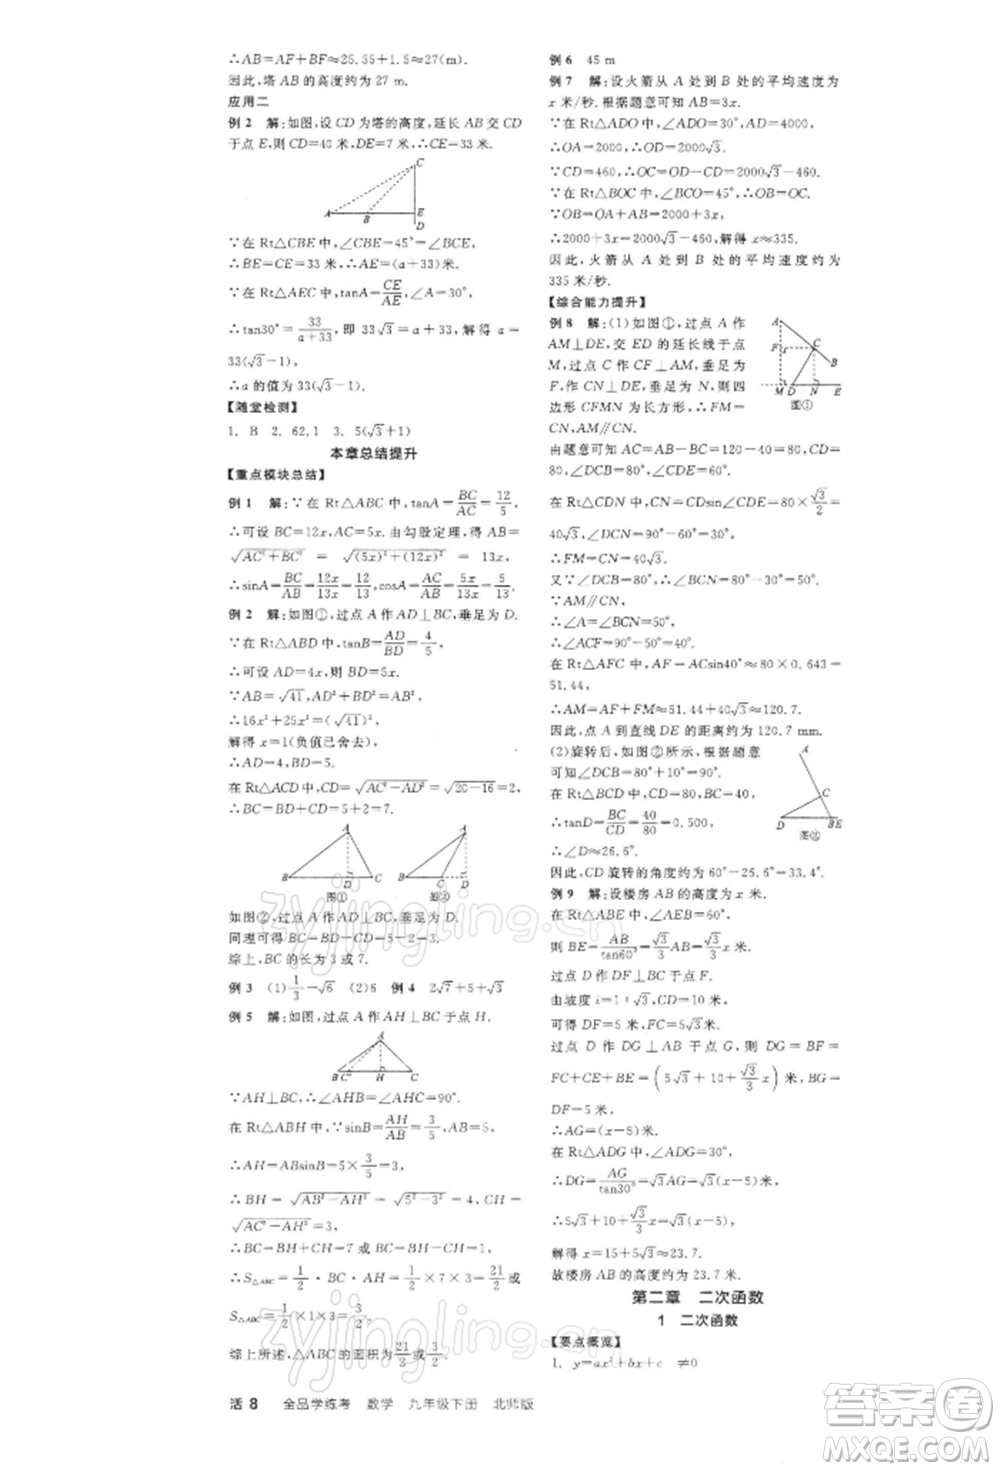 ∴AB=AF+BF≈25.55+1.5≈27(m).
因此,塔 AB 的高度约为 27 m.
应用二
例 2 解:如图,设 CD 为塔的高度,延长 AB 交 CD
于点 E,则 CD=40 米,DE=7 米
C
A B E
D
∵在 Rt△CBE 中,∠CBE=45°=∠BCE,
∴BE=CE=33 米,∴AE=(a+33)米.
∵在 Rt△AEC 中,tanA=CE/AE,∠A=30°,
∴tan30°=33/(a+33),即 33√3=a+33,解得 a=
33(√3-1).
∴a 的值为 33(√3-1).
【随堂检测】
1. B 2. 62.1 3. 5(√3+1)
本章总结提升
【重点模块总结】
例 1 解:∵在 Rt△ABC 中,tanA=BC/AC=12/5,
∴可设 BC=12x,AC=5x. 由勾股定理,得 AB=
√(AC²+BC²) = √((5x)²+(12x)²) = 13x,
∴sinA=BC/AB=12x/13x=12/13,cosA=AC/AB=5x/13x=5/13.
例 2 解:如图①,过点 A 作 AD⊥BC,垂足为 D.
∵在 Rt△ABD 中,tanB=AD/BD=4/5,
∴可设 AD=4x,则 BD=5x.
∵AB=√41,AD²+BD²=AB²,
∴16x²+25x²=(√41)²,
解得 x=1(负值已舍去),
∴AD=4,BD=5.
在 Rt△ACD 中,CD=√(AC²-AD²)=√(20-16)=2,
∴BC=BD+CD=5+2=7.
A A
B D C B C D
图① 图②
如图②,过点 A 作 AD⊥BC,垂足为 D.
同理可得 BC=BD-CD=5-2=3.
综上,BC 的长为 3 或 7.
例 3 (1)1/3-√6 (2)6 例 4 2√7+5+√3
例 5 解:如图,过点 A 作 AH⊥BC 于点 H.
A
B C' H C
∵AH⊥BC,∴∠AHB=∠AHC=90°.
在 Rt△ABH 中,∵sinB=AH/AB=3/5,AB=5,
∴AH=ABsinB=5×3/5=3,
∴BH=√(AB²-AH²)=√(5²-3²)=4,CH=
√(AC²-AH²)=3,
∴BC=BH+CH=7 或 BC=BH-CH=1,
∴S△ABC=1/2·BC·AH=1/2×7×3=21/2 或
S△ABC=1/2×1×3=3/2.
综上所述,△ABC 的面积为21/2或3/2.
活 8 全品学练考 数学 九年级下册 北师版
例 6 45 m
例 7 解:设火箭从 A 处到 B 处的平均速度为
x 米/秒. 根据题意可知 AB=3x.
∵在 Rt△ADO 中,∠ADO=30°,AD=4000,
∴OA=2000,∴OD=2000√3.
∵CD=460,∴OC=OD-CD=2000√3-460.
∵在 Rt△BOC 中,∠BCO=45°,∴OB=OC.
∵OB=OA+AB=2000+3x,
∴2000+3x=2000√3-460,解得 x≈335.
因此,火箭从 A 处到 B 处的平均速度约为
335 米/秒.
【综合能力提升】
例 8 解:(1)如图①,过点 A 作
AM⊥DE,交 ED 的延长线于点
M,过点 C 作 CF⊥AM,垂足为
F,作 CN⊥DE,垂足为 N,则四
边形 CFMN 为长方形,∴FM=
CN,AM∥CN.
A
F C
B
M D N E
图①
由题意可知 AC=AB-BC=120-40=80,CD=
80,∠BCD=50°,∠CDE=60°.
在 Rt△CDN 中,CN=CDsin∠CDE=80×√3/2=
40√3,∠DCN=90°-60°=30°,
∴FM=CN=40√3.
又∵∠BCN=∠BCD-∠DCN=50°-30°=20°,
∵AM∥CN,
∴∠A=∠BCN=20°,
∴∠ACF=90°-20°=70°.
在 Rt△AFC 中,AF=ACsin40°≈80×0.643=
51.44,
∴AM=AF+FM≈51.44+40√3≈120.7.
因此,点 A 到直线 DE 的距离约为 120.7 mm.
(2)旋转后,如图②所示,根据题意
可知∠DCB=90°.
在 Rt△BCD 中,CD=80,BC=40,
∴tanD=BC/CD=40/80=0.500,
∴∠D≈26.6°.
A
C
D B E
图②
CD 旋转的角度约为 60°-26.6°=33.4°.
例 9 解:设楼房 AB 的高度为 x 米.
在 Rt△ABE 中,∠AEB=60°,
则 BE=AB/tan60°=√3/3AB=√3/3x(米).
过点 D 作 DF⊥BC 于点 F.
由坡度 i=1∶√3,CD=10 米,
可得 DF=5 米,FC=5√3米.
过点 D 作 DG⊥AB 于点 G,则 DG=BF=
FC+CE+BE=(5√3+10+√3/3x)米,BG=
DF=5 米,
∴AG=(x-5)米.
在 Rt△ADG 中,∠ADG=30°,
∴DG=AG/tan30°=√3AG=√3(x-5)米,
∴5√3+10+√3/3x=√3(x-5),
解得 x=15+5√3≈23.7.
故楼房 AB 的高度约为 23.7 米.
第二章 二次函数
1 二次函数
【要点概览】
1. y=ax²+bx+c ≠0
zyjingling.cn
zyjingling.cn
作业精灵
作业精灵
答案圈
MXQE.COM